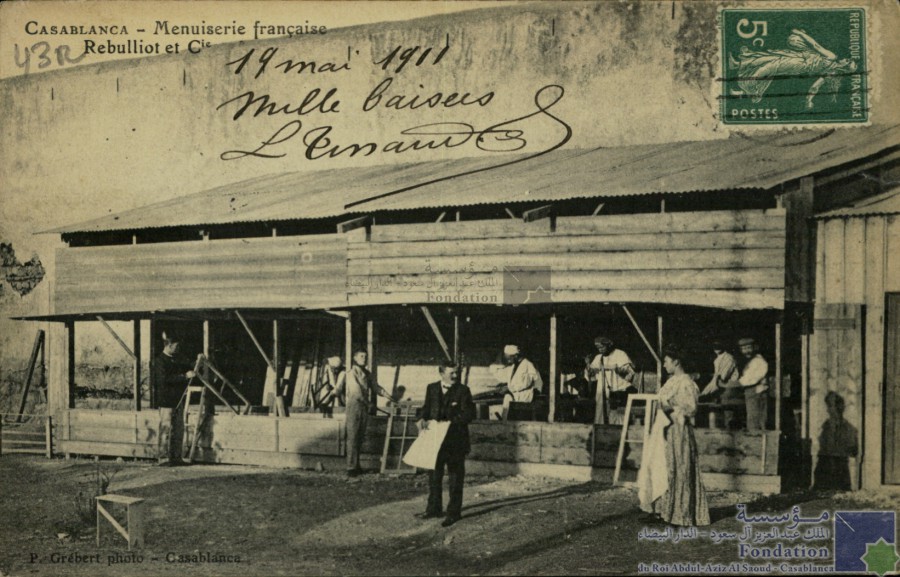 CASABLANCA – Menuiserie française
Rebulliot et Cie
43R
19 mai 1911
Mille baisers
5c
REPUBLIQUE FRANÇAISE
POSTES
مؤسسة
الملك عبد العزيز آل سعود - الدار البيضاء
Fondation
P. Grébert photo – Casablanca
مؤسسة
الملك عبد العزيز آل سعود - الدار البيضاء
Fondation
du Roi Abdul-Aziz Al Saoud - Casablanca